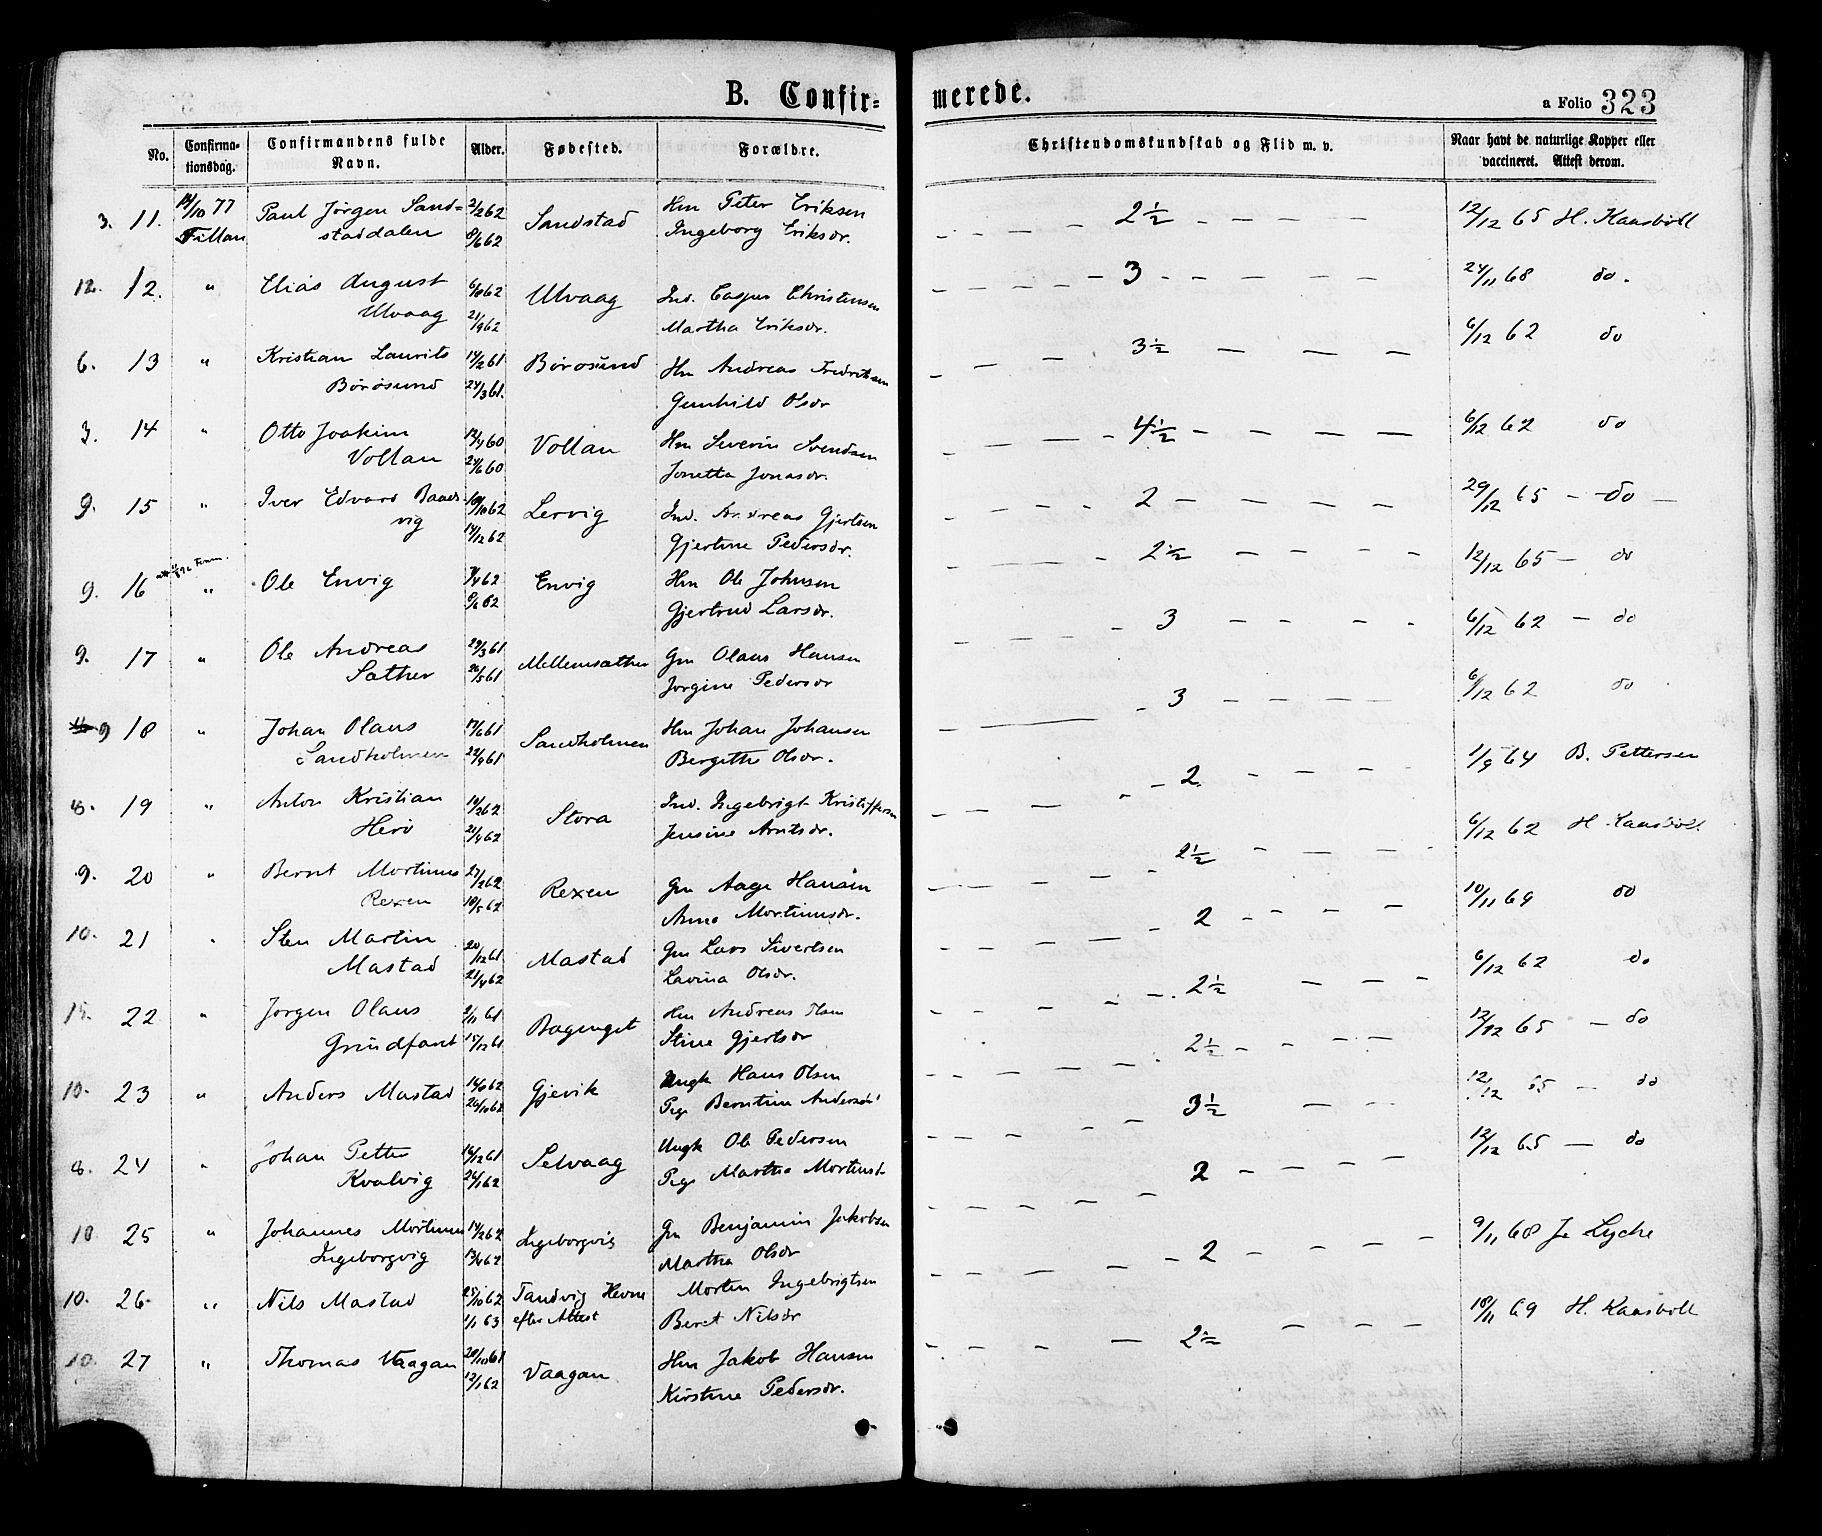 B. Confir- merede.
a Folio 323
No.
Confirma-
tionsdag.
Confirmandens fulde
Navn.
Alder.
Fødested.
Forældre.
Christendomskundskab og Flid m. v.
Naar havt de naturlige Kopper eller
vaccineret. Attest derom.
3. 11. 14/10 77 Paul Jörgen Sand= 2/2 62 Sandstad Hm Peter Eriksen 2 1/2 12/12 65 H. Kaasböll
Fillan staddalen 8/6 62 Ingeborg Eriksdr.
12. 12. " Elias August 6/8 62 Ulvaag Ind. Casper Christensen 3 24/11 68 do.
Ulvaag 21/9 62 Martha Eriksdr.
6. 13 " Kristian Laurits 14/2 61 Börösund Hm Andreas Fredriksen 3 1/2 6/12 62 do
Börösund 24/3 61. Gunhild Olsdr
3. 14 " Otto Joakim 12/4 60 Vollan Hm Severin Svendsen 4 1/2 6/12 62 do
Vollan 24/6 60 Jonetta Jonasdr.
9. 15 " Iver Edvard Baads- 10/10 62 Lervig Ind. Andreas Gjertsen 2 29/12 65 do
vig 14/12 62 Gjertine Pedersdr.
9. 16 " Ole Envig 7/4 62 Envig Hm Ole Johnsen 2 1/2 12/12 65 do
8/6 62 Gjertrud Larsdr.
9. 17 " Ole Andreas 29/3 61 Mellemsæther Gm Olaus Hansen 3 6/12 62 do
Sæther 26/5 61 Jorgine Pedersdr
9 18 " Johan Olaus 17/6 61 Sandholmen Hm Johan Johansen 3 6/12 62 do
Sandholmen 22/9 61 Bergitte Olsdr.
8. 19 " Anton Kristian 14/2 62 Stora Ind. Ingebrigt Kristoffersen 2 1/9 64 B. Pettersen
Herö 21/4 62 Jensine Arntsdr.
9. 20 " Bernt Mortinus 27/2 62 Rexen Gm Aage Hansen 2 1/2 6/12 62 H Kaasböll
Rexen 18/5 62 Anna Mortinusdr.
10. 21 Sten Martin 20/12 61 Mastad Gm Lars Sivertsen 2 10/11 69 do
Mastad 21/4 62 Lavina Olsdr.
15. 22 " Jorgen Olaus 2/11 61 Bagenget Hm Andreas Olsen 2 1/2 6/12 62 do
Grindfant 15/12 61 Stine Gjertsdr
10. 23 " Anders Mastad 14/8 62 Gjevik Ungk Hans Olsen 2 1/2 12/12 65 do
26/10 62 Pige Berntine Andersdr
8. 24 " Johan Petter 14/12 61 Selvaag Ungk Ole Pedersen 3 1/2 12/12 65 do
Kvalvig 26/1 62 Pige Martha Mortensd
10 25 " Johannes Mortinus 14/2 62 Ingeborgvig Gm Benjamin Jakobsen 2 12/12 65 do
Ingeborgvig 13/4 62 Martha Olsdr
10. 26. " Nils Mastad 25/10 62 Tandvig Hevne Morten Ingebrigtsen 2 9/11 68 J. Lyche
1/1 63 efter Attest Beret Nilsdr
10. 27 " Thomas Vaagan 20/10 61 Vaagan Hm Jakob Hansen 2 1/2 18/11 69 H. Kaasböll
12/1 62 Kirstine Pedersdr.